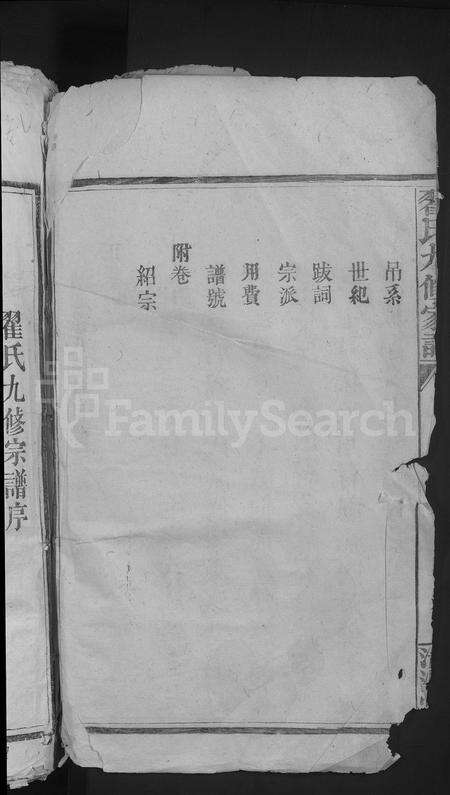 翟氏九修家譜
吊系
世紀
跋詞
宗派
用費
譜號
附卷
紹宗
翟氏九修宗譜序
FamilySearch